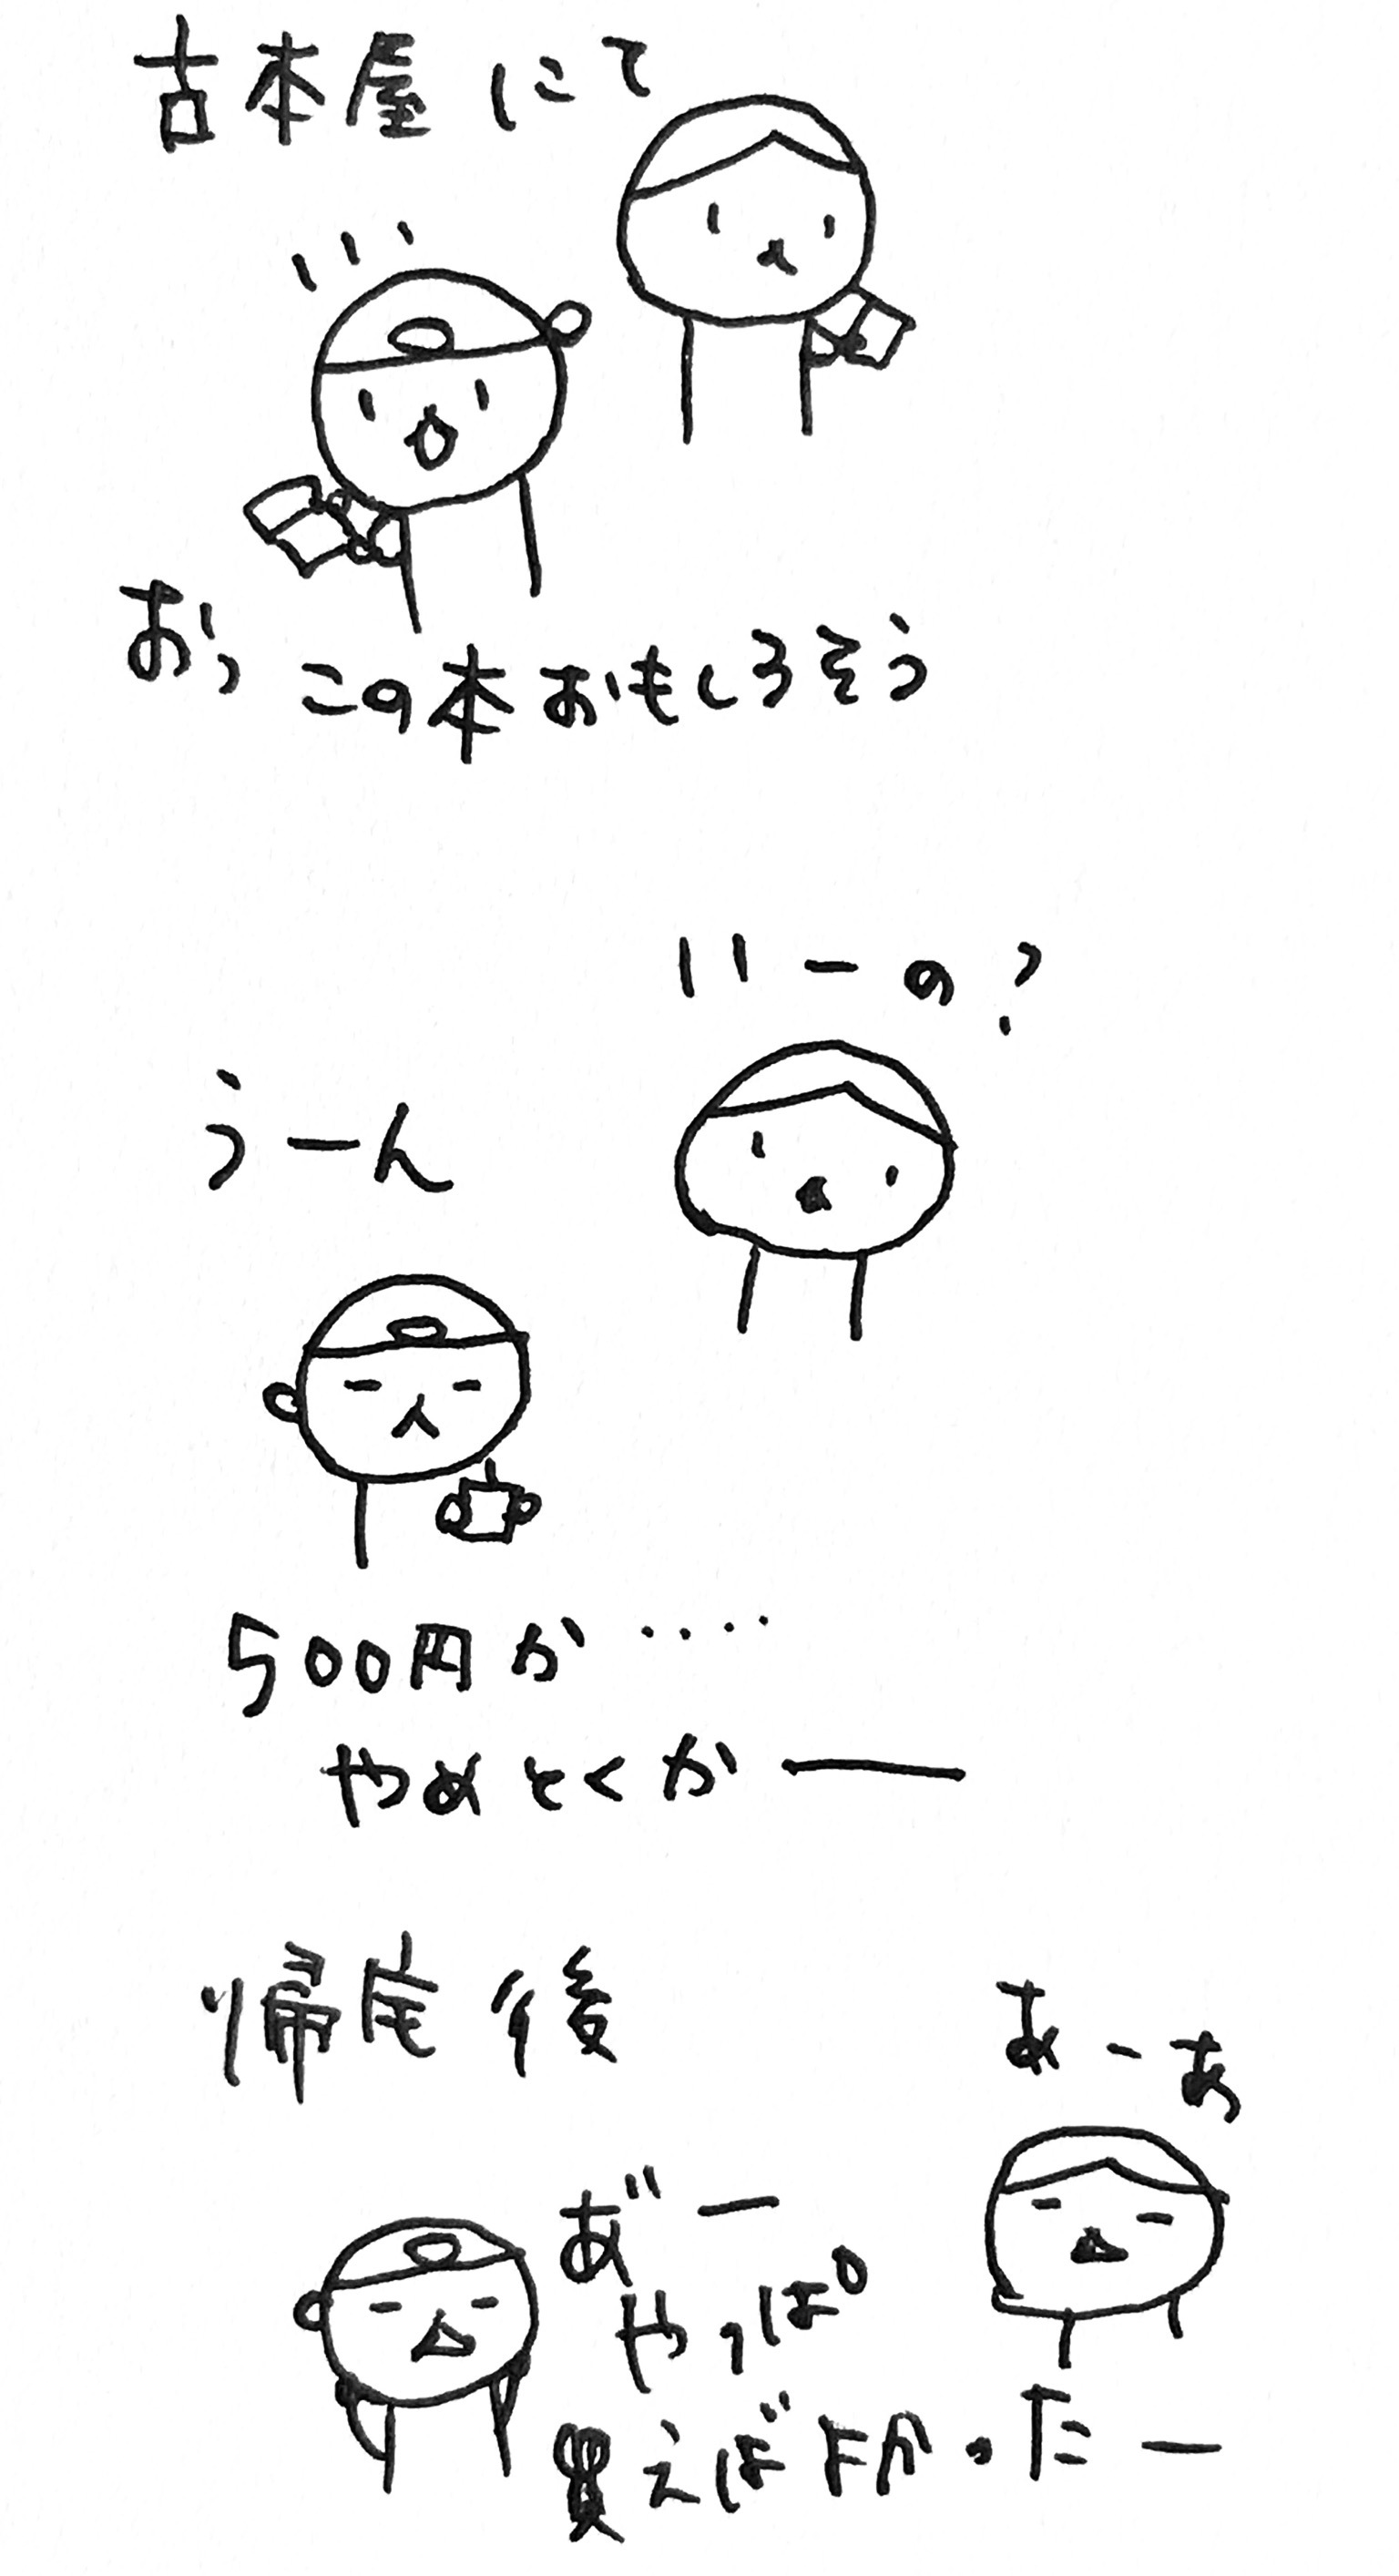 古本屋にて
おっ
この本おもしろそう
いーの?
うーん
500円か‥‥
やめとくかー
帰宅後
あーあ
あ゛ー
やっぱ
買えばよかったー